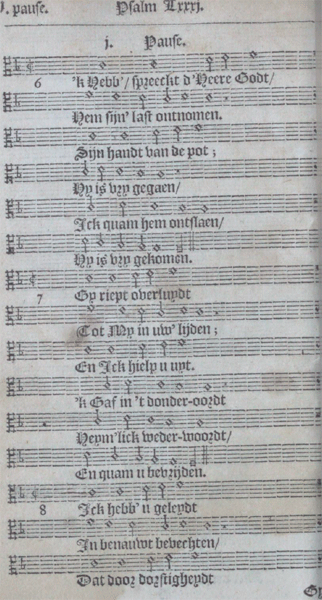 J. pause. Psalm Lxxxj.
j. Pause.
6 'k Hebb'/ spreeckt d'Heere Godt/
Hem sijn' last ontnomen.
Sijn handt van de pot;
Hy is vry gegaen/
Ick quam hem ontslaen/
Hy is vry gekomen.
7 Gy riept overluydt
Tot My in uw' lijden;
En Ick hielp u uyt.
'k Gaf in 't donder-oordt
Heym'lick weder-woordt/
En quam u bevrijden.
8 Ick hebb' u geleydt
In benauwt bevechten/
Dat door dorstigheydt